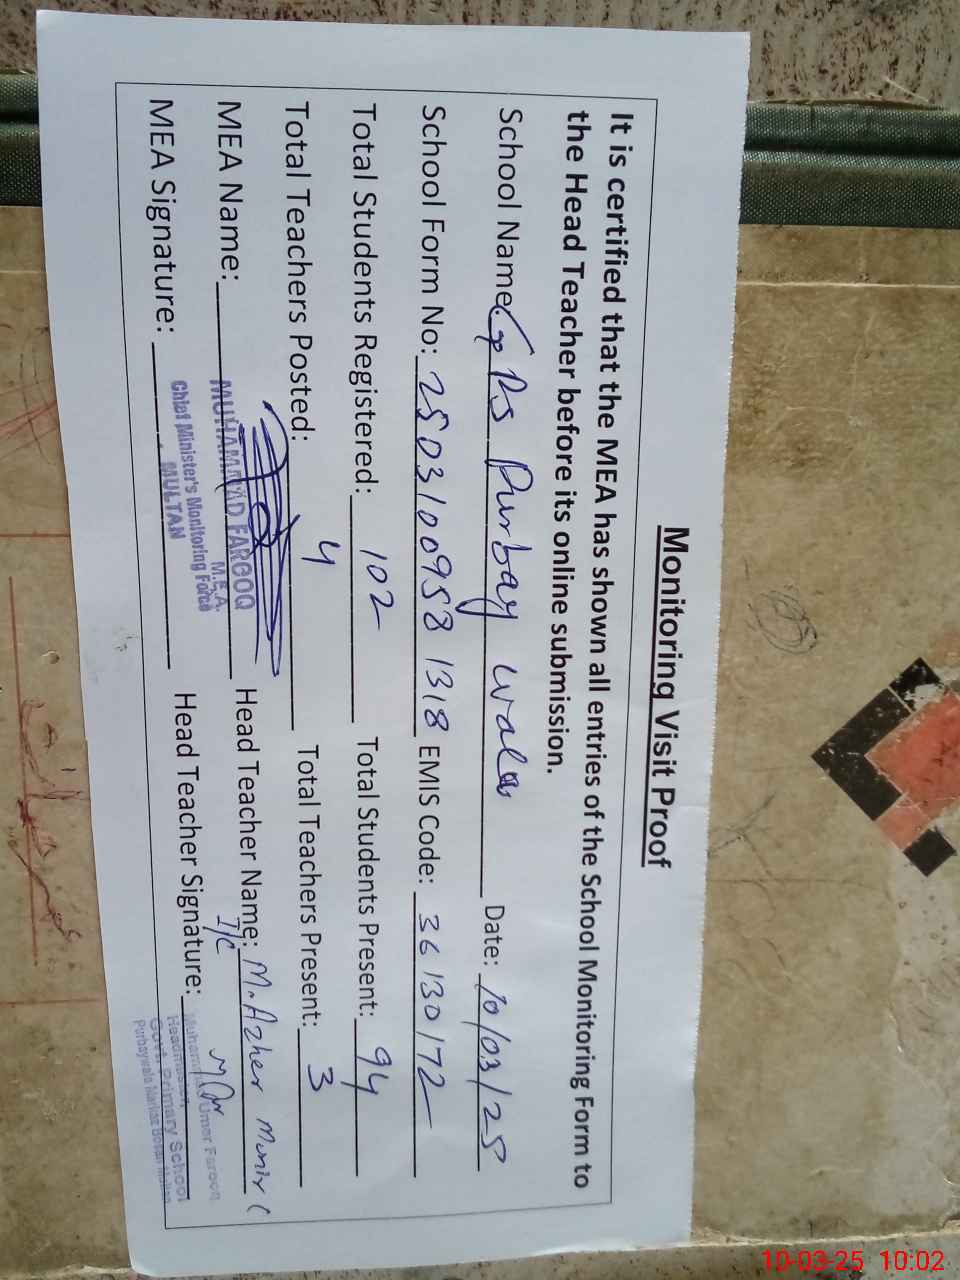 Monitoring Visit Proof
It is certified that the MEA has shown all entries of the School Monitoring Form to
the Head Teacher before its online submission.
School Name: GPS Purbay wala Date: 10/03/25
School Form No: 25031009581318 EMIS Code: 36130172
Total Students Registered: 102 Total Students Present: 94
Total Teachers Posted: 4 Total Teachers Present: 3
MEA Name: Head Teacher Name: M. Azher Munir
I/C
MEA Signature: Head Teacher Signature:
MUHAMMAD FAROOQ
M.E.A.
Chief Minister's Monitoring Force
MULTAN
Muhammad Umer Farooq
Headmaster
Govt. Primary School
Purbaywala Markaz Bosan Multan
10-03-25 10:02